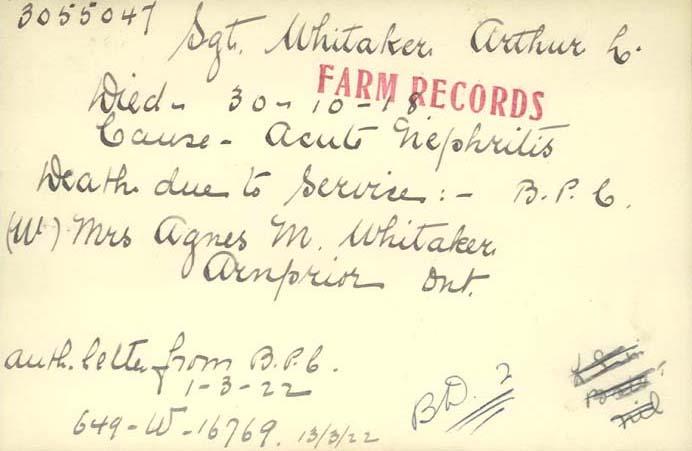 3055047
Sgt. Whitaker. Arthur L.
FARM RECORDS
Died - 30-10-18
Cause - Acute Nephritis
Death due to Service:- B.P.C.
(W) Mrs Agnes M. Whitaker.
Arnprior Ont.
auth. letter from B.P.C.
1-3-22
649-W-16769. 13/3/22
B.D. 2